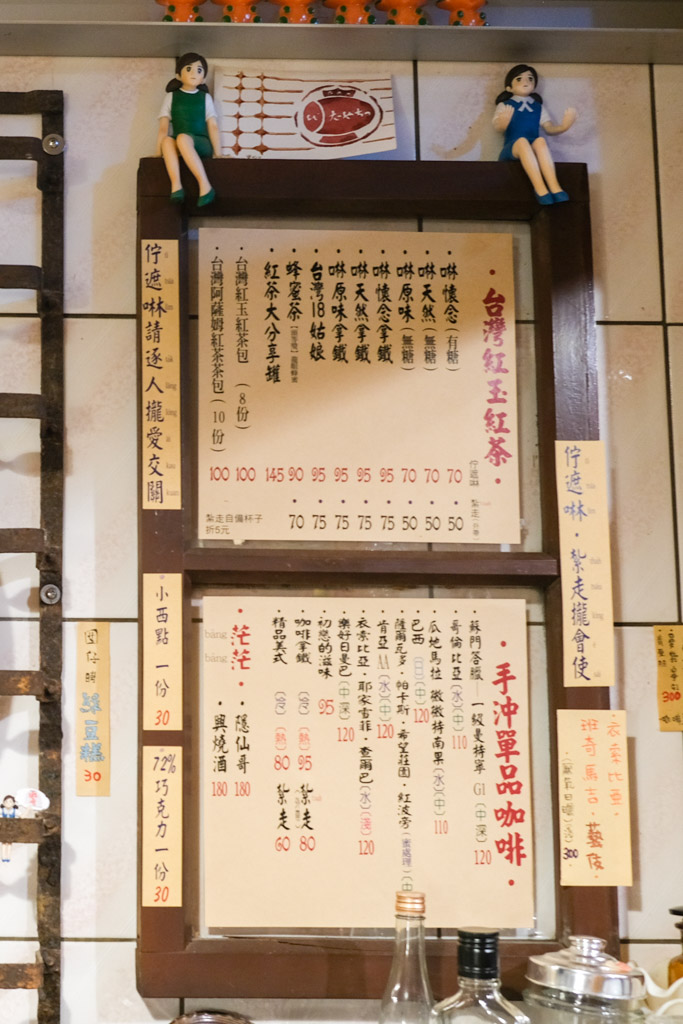 佇遮啉請逐人攏愛交關
小西點 一份 30
72%巧克力 一份 30
綠豆糕 30
·台灣紅玉紅茶·
佇遮啉 紮走
·啉懷念(有糖) 70 50
·啉天然(無糖) 70 50
·啉原味(無糖) 70 50
·啉懷念拿鐵 95 75
·啉天然拿鐵 95 75
·啉原味拿鐵 95 75
·台灣18姑娘 95 75
·蜂蜜茶 90 70
·紅茶大分享罐 145
·台灣紅玉紅茶包(8份) 100
·台灣阿薩姆紅茶茶包(10份) 100
紮走自備杯子
折5元
佇遮啉·紮走攏會使
·手沖單品咖啡·
·蘇門答臘—一級曼特寧 G1(中深) 120
·哥倫比亞(水)(中) 110
·瓜地馬拉 微微特南果(水)(中) 110
·巴西(日)(中) 120
·薩爾瓦多·帕卡斯·希望莊園·紅波旁(蜜處理)(中
·肯亞AA(水)(中) 120
·衣索比亞·耶家雪菲·查爾巴(水)(淺) 120
·樂好日曼巴(中深) 120
·初戀的滋味 95
·咖啡拿鐵(冷)(熱) 95 紮走 80
·精品美式(冷)(熱) 80 紮走 60
·茫茫·
bâng bâng
·隱仙哥 180
·興燒酒 180
衣索比亞·
班奇馬吉·藝伎·
300
300